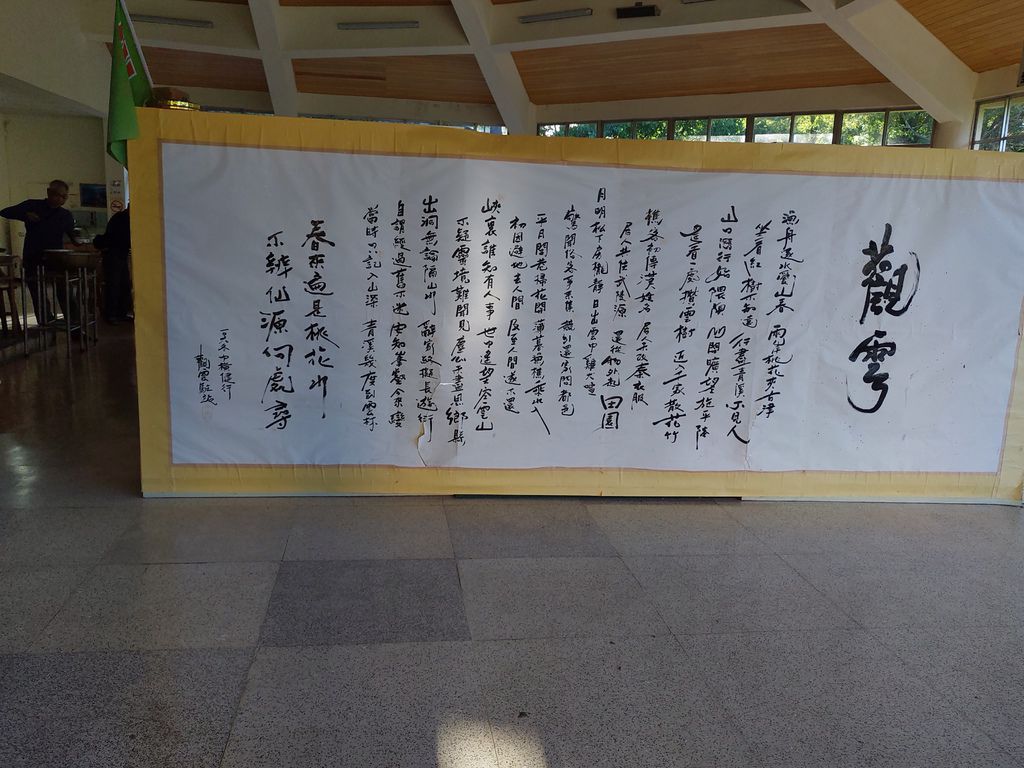 觀雲
漁舟逐水愛山春 兩岸桃花夾古津
坐看紅樹不知遠 行盡青溪不見人
山口潛行始隈隩 山開曠望旋平陸
遙看一處攢雲樹 近入千家散花竹
樵客初傳漢姓名 居人未改秦衣服
居人共住武陵源 還從物外起田園
月明松下房櫳靜 日出雲中雞犬喧
驚聞俗客爭來集 競引還家問都邑
平明閭巷掃花開 薄暮漁樵乘水入
初因避地去人間 及至人間遂不還
峽裏誰知有人事 世中遙望空雲山
不疑靈境難聞見 塵心未盡思鄉縣
出洞無論隔山水 辭家終擬長遊衍
自謂經過舊不迷 安知峯壑今來變
當時只記入山深 青溪幾度到雲林
春來遍是桃花水
不辨仙源何處尋
中橫健行
觀雲駐站